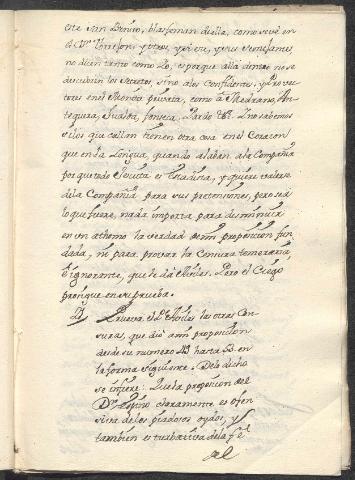 este san Benito, blasfeman de ella, como se vè en
el
no dicen tanto como Lo, es porque allà dentro no se
descubren los secretos, sino a los confidentes, y Provec
tos en el Monita privata, como à Medrano, An
tequera, Suslda, fonseca, Pardo &. No sabemos
si los que callan tienen otra cosa en el Corazon
que en la Lengua, quando alaban a la Compañia
porque todo Jesuita es Estadista, y quiere valerse
de la Compañia para sus pretensiones, pero sea
lo que fuere, nada importa para disminuir
en un athomo la verdad de mi proposicion fun
dada, ni para provar la censura temeraria,
è ignorante, que le dà Aviles. Pero el Ciego
prosigue en su prueba.
Prueva el P. Aviles las otras Cen
suras, que diò à mi proposicion
desde su numero 43 hasta 53. en
la forma siguiente. De lo dicho
se infiere: Que la proposicion del
Dr. Espino claramente es ofen
siva de los piadosos oydos, y
tambien es turbativa de la fe
del